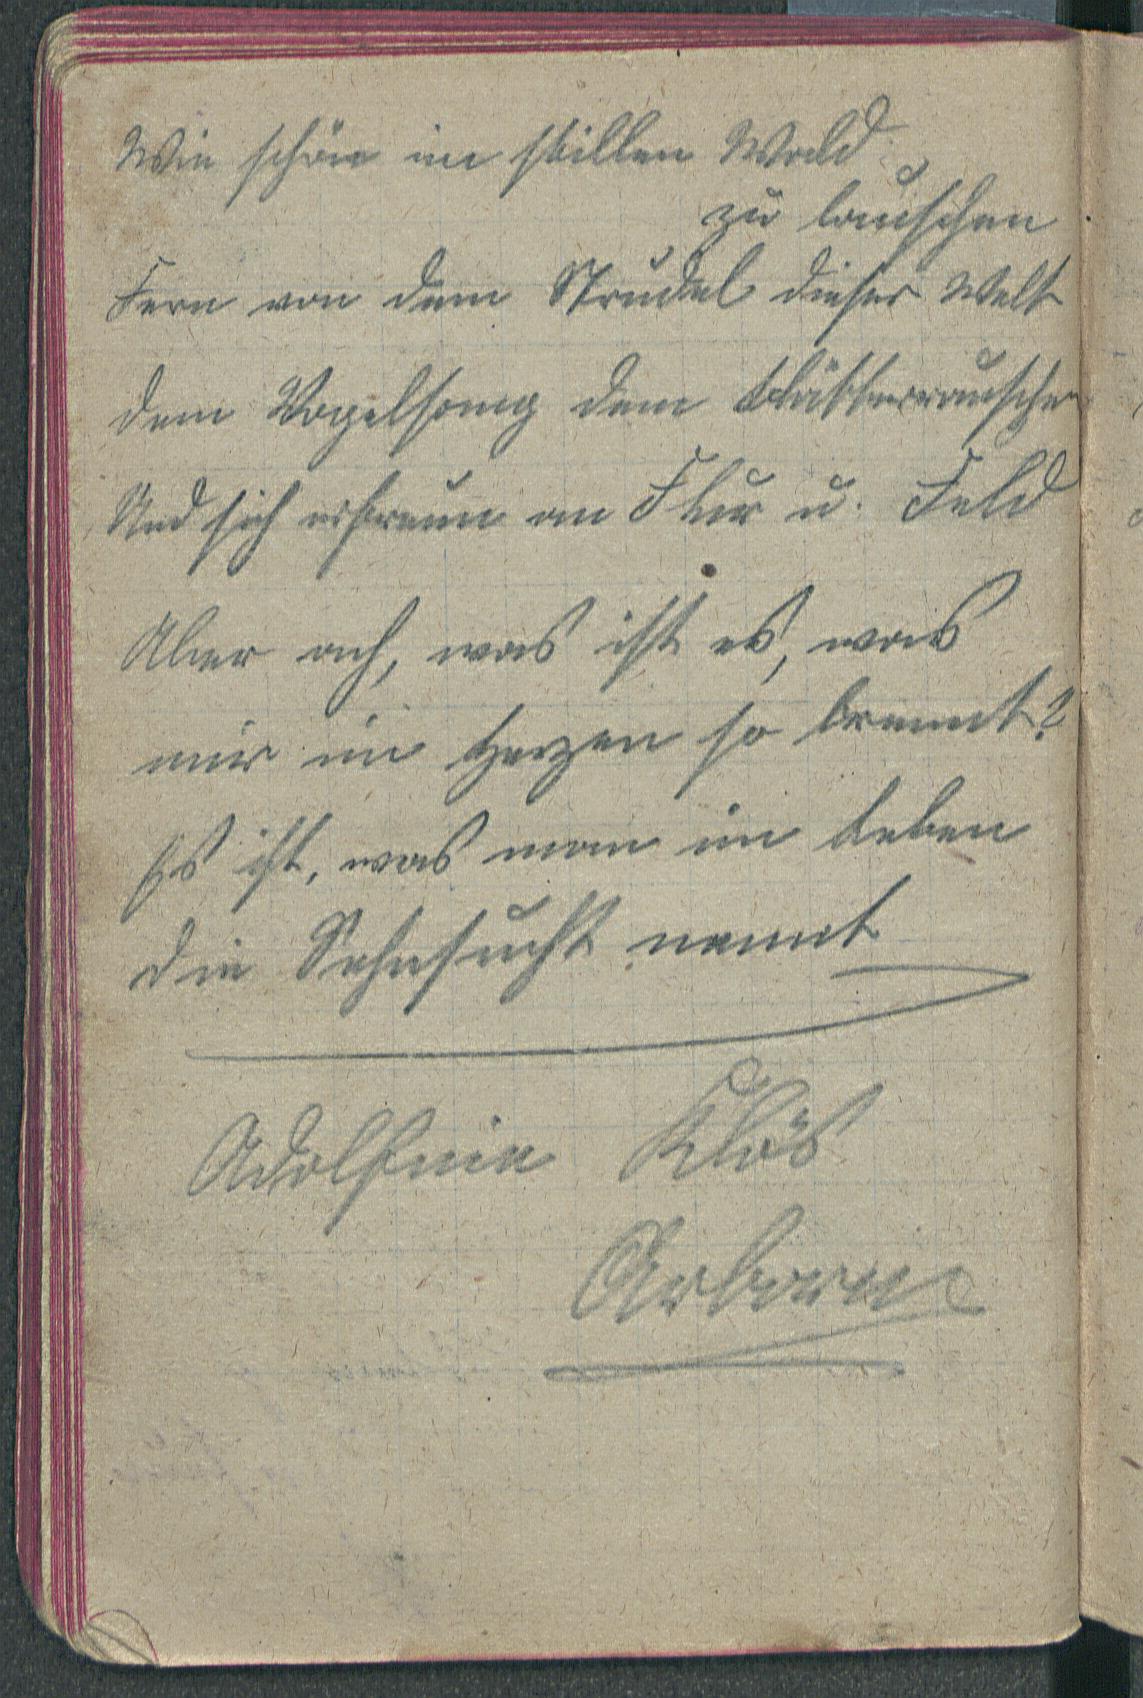 Wie schön im stillen Wald
zu lauschen
Fern von dem Strudel dieser Welt
dem Vogelsang dem Blätterrauschen
Und sich erfreun an Flur u. Feld
Aber ach, was ist es, was
mir im Herzen so brennt?
Es ist, was man im Leben
die Sehnsucht nennt
Adolfine Klös
Arborn